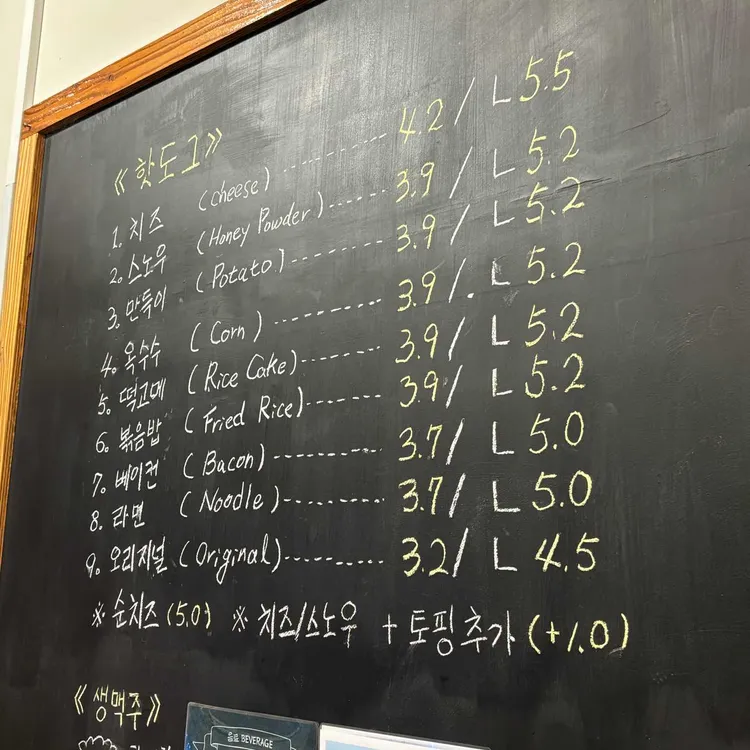 《핫도그》
1. 치즈 (cheese) ---------- 4.2 / L 5.5
2. 스노우 (Honey Powder) ------- 3.9 / L 5.2
3. 만득이 (Potato) ---------- 3.9 / L 5.2
4. 옥수수 (Corn) ------------ 3.9 /. L 5.2
5. 떡고매 (Rice Cake) --------- 3.9 / L 5.2
6. 볶음밥 (Fried Rice) -------- 3.9 / L 5.2
7. 베이컨 (Bacon) ------------ 3.7 / L 5.0
8. 라면 (Noodle) ----------- 3.7 / L 5.0
9. 오리지널 (Original) ---------- 3.2 / L 4.5
※ 순치즈 (5.0) ※ 치즈/스노우 + 토핑추가 (+1.0)
《생맥주》
BEVERAGE